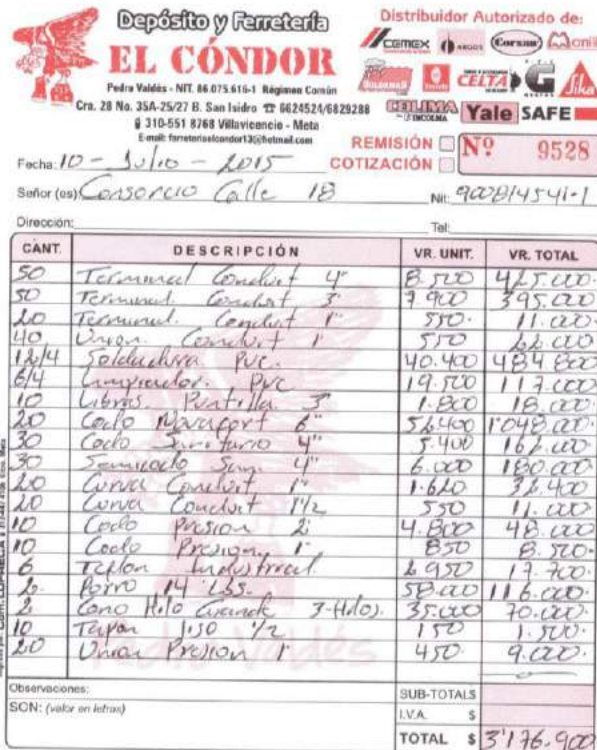 Depósito y Ferretería
EL CÓNDOR
Pedro Valdés - NIT. 86.075.616-1 Régimen Común
Cra. 28 No. 35A-25/27 B. San Isidro ☎ 6624524/6829288
310-551 8768 Villavicencio - Meta
E-mail: ferreteriaelcondor13@hotmail.com
Distribuidor Autorizado de:
CEMEX ARGOS Corona
CELTA G Sika
COLIMA Yale SAFE
REMISIÓN
COTIZACIÓN
Nº 9528
Fecha: 10 - Julio - 2015
Señor (es) Consorcio Calle 18 Nit: 900814541-1
Dirección: Tel:
CANT. DESCRIPCIÓN VR. UNIT. VR. TOTAL
50 Terminal Conduit 4" 8.500 425.000
50 Terminal Conduit 3" 7.900 395.000
20 Terminal. Conduit 1" 550. 11.000
40 Union. Conduit 1" 550 22.000
12/4 Soldadura PVC. 40.400 484.800
6/4 Limpiador. PVC 19.500 117.000
10 Libras. Puntilla 3" 1.800 18.000
20 Codo Novafort 6" 52.400 1'048.000
30 Codo Sanitario 4" 5.400 162.000
30 Semicodo San. 4" 6.000 180.000
20 Curva Conduit 1" 1.620 32.400
20 Curva Conduit 1 1/2 550 11.000
10 Codo Presion 2" 4.800 48.000
10 Codo Presion 1" 850 8.500.
6 Teflon Industrial 2.950 17.700.
2. Porro 14 Lbs. 58.000 116.000
2 Cono Hilo Grande 3-Hilos. 35.000 70.000
10 Tapon liso 1/2 150 1.500.
20 Union Presion 1" 450. 9.000.
Observaciones:
SON: (valor en letras)
SUB-TOTAL $
I.V.A. $
TOTAL $ 3'176.900